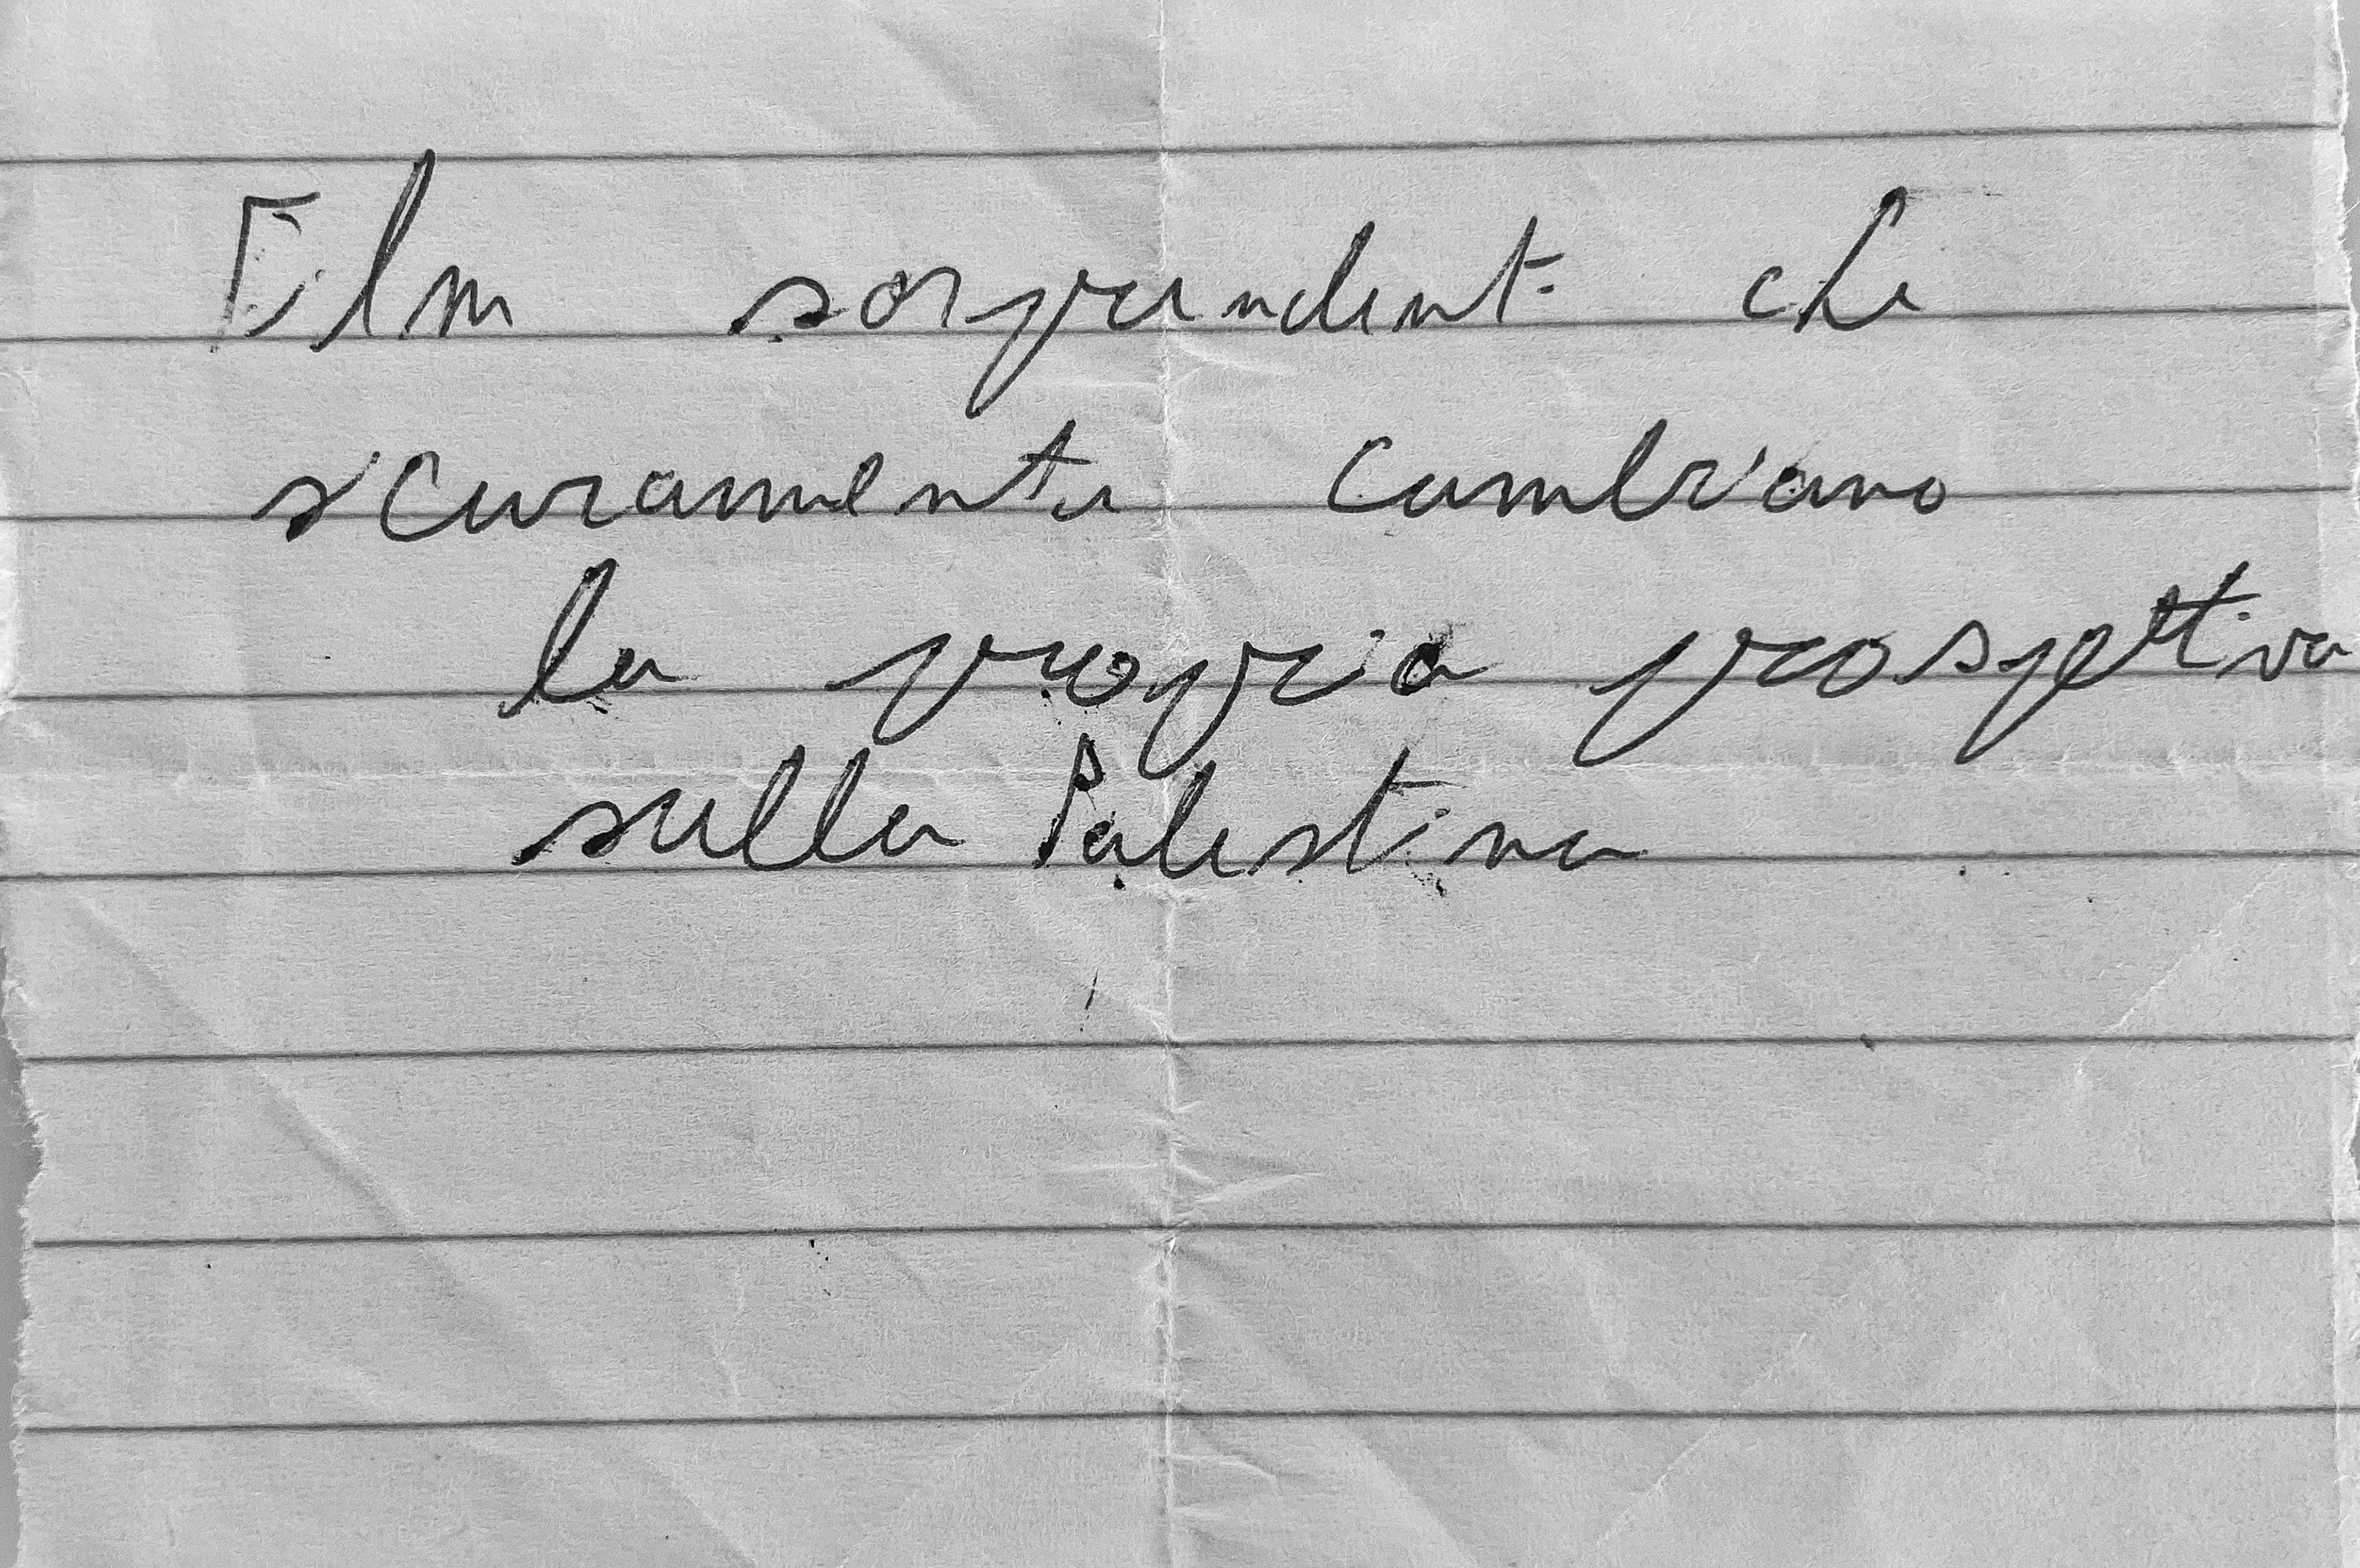 Film sorprendente che
sicuramente cambiano
la propria prospettiva
sulla Palestina